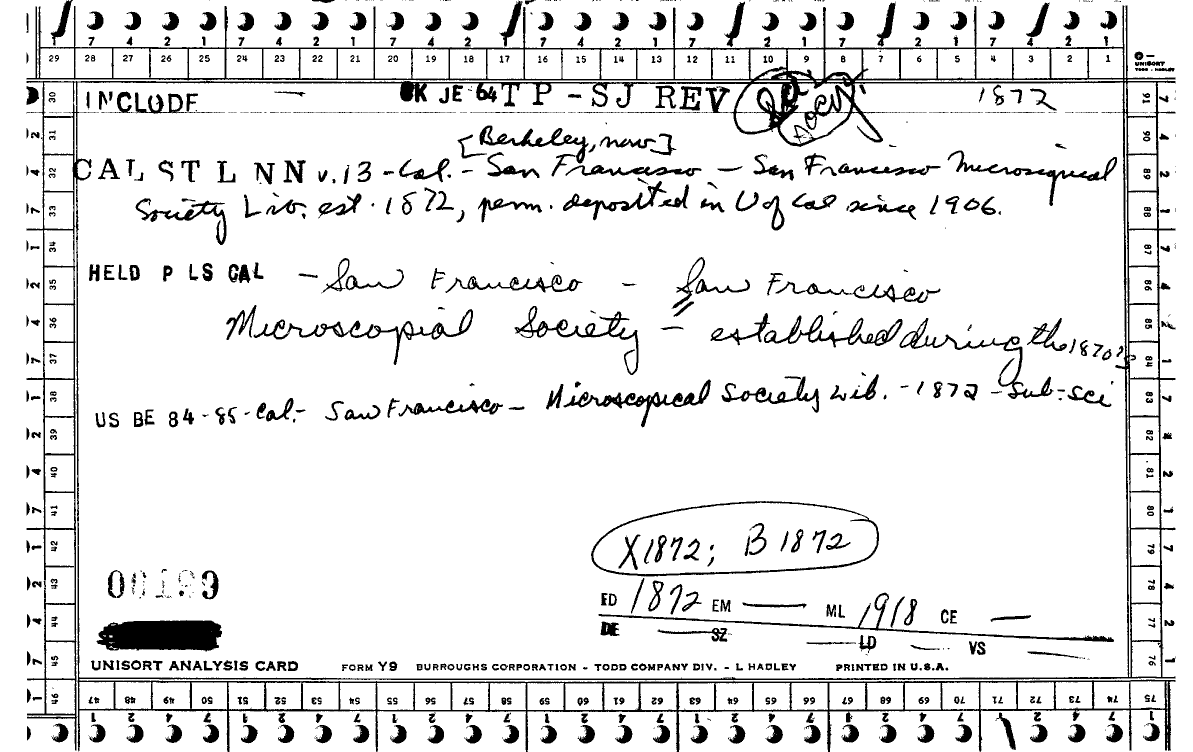 7 4 2 1 7 4 2 1 7 4 2 1 7 4 2 1 7 4 2 1 7 4 2 1 7 4 2 1
29 28 27 26 25 24 23 22 21 20 19 18 17 16 15 14 13 12 11 10 9 8 7 6 5 4 3 2 1
UNISORT
TODD - HADLEY
INCLUDE OK JE 64 T P - SJ REV Socy. 1872
[Berkeley, now]
CAL ST L NN v.13 - Cal. - San Francisco - San Francisco Microsiquical
Society Lib. est. 1872, perm. deposited in U of Cal since 1906.
HELD P LS CAL - San Francisco - San Francisco
Microscopial Society - established during the 1870's
US BE 84-85-Cal.- San Francisco - Microscopical Society Lib. - 1872 - Sub: Sci
X1872; B 1872
00199
ED 1872 EM — ML 1918 CE —
DE — SZ — LD — VS —
UNISORT ANALYSIS CARD FORM Y9 BURROUGHS CORPORATION - TODD COMPANY DIV. - L HADLEY PRINTED IN U.S.A.
30 31 32 33 34 35 36 37 38 39 40 41 42 43 44 45 46
91 90 89 88 87 86 85 84 83 82 81 80 79 78 77 76
47 48 49 50 51 52 53 54 55 56 57 58 59 60 61 62 63 64 65 66 67 68 69 70 71 72 73 74 75